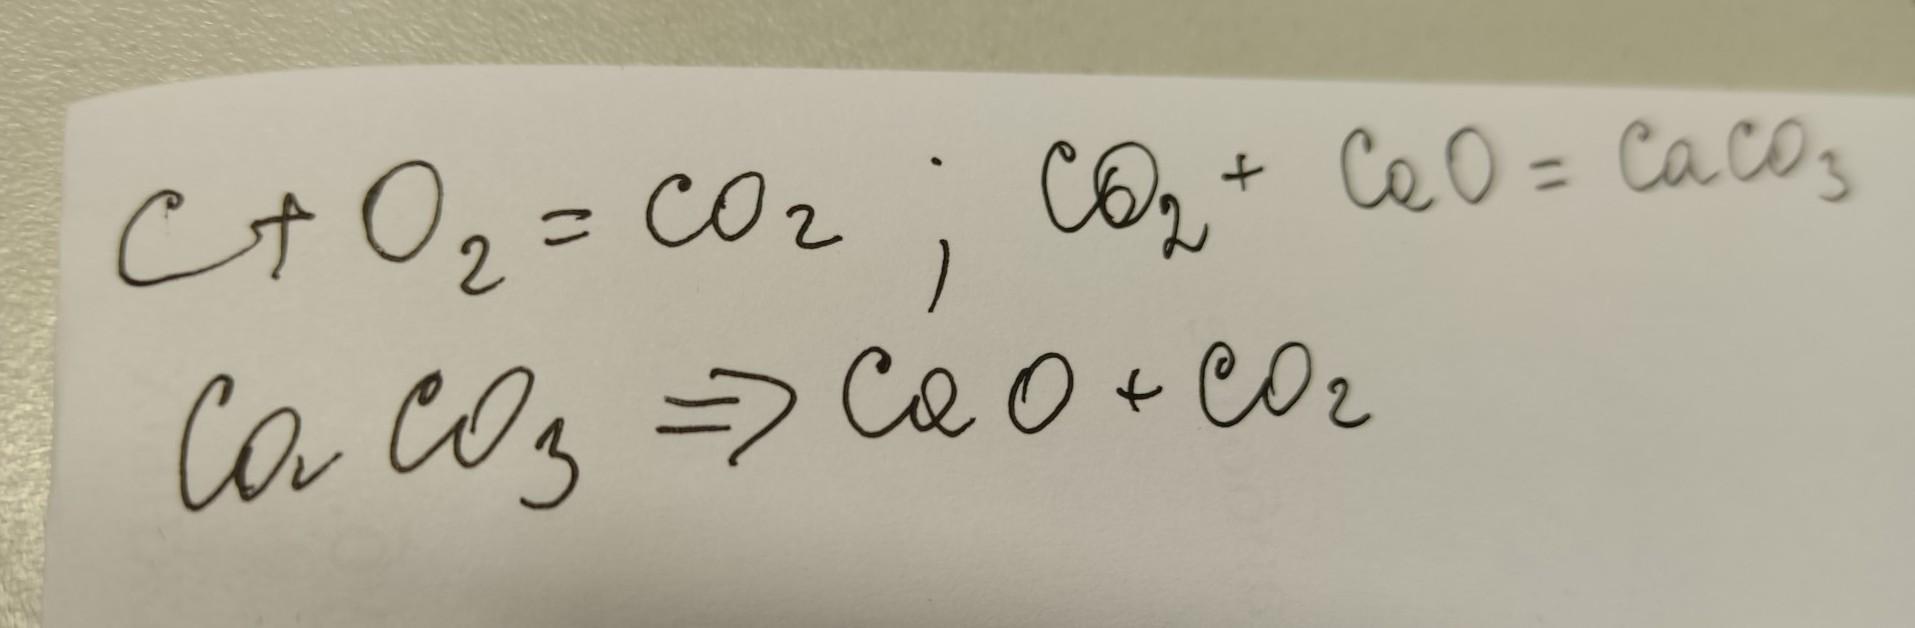 C + O₂ = CO₂ ; CO₂ + CaO = CaCO₃
CaCO₃ ⇒ CaO + CO₂